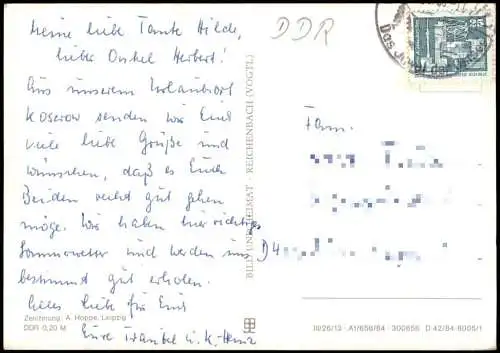 meine liebe Tante Hilde,
lieber Onkel Herbert!
Aus unserem Urlaubsort
Koserow senden wir Euch
viele liebe Grüße und
wünschen, daß es Euch
Beiden recht gut gehen
möge. Wir haben hier richtiges
Sommerwetter und werden uns
bestimmt gut erholen.
Alles liebe für Euch
Eure u. K. Heinz
Zeichnung: A. Hoppe, Leipzig
DDR 0,20 M
BILD UND HEIMAT · REICHENBACH (VOGTL)
DDR
Das der
25
Fam.
D4
III/26/13 · A1/656/84 · 300656 D 42/84 6005/1